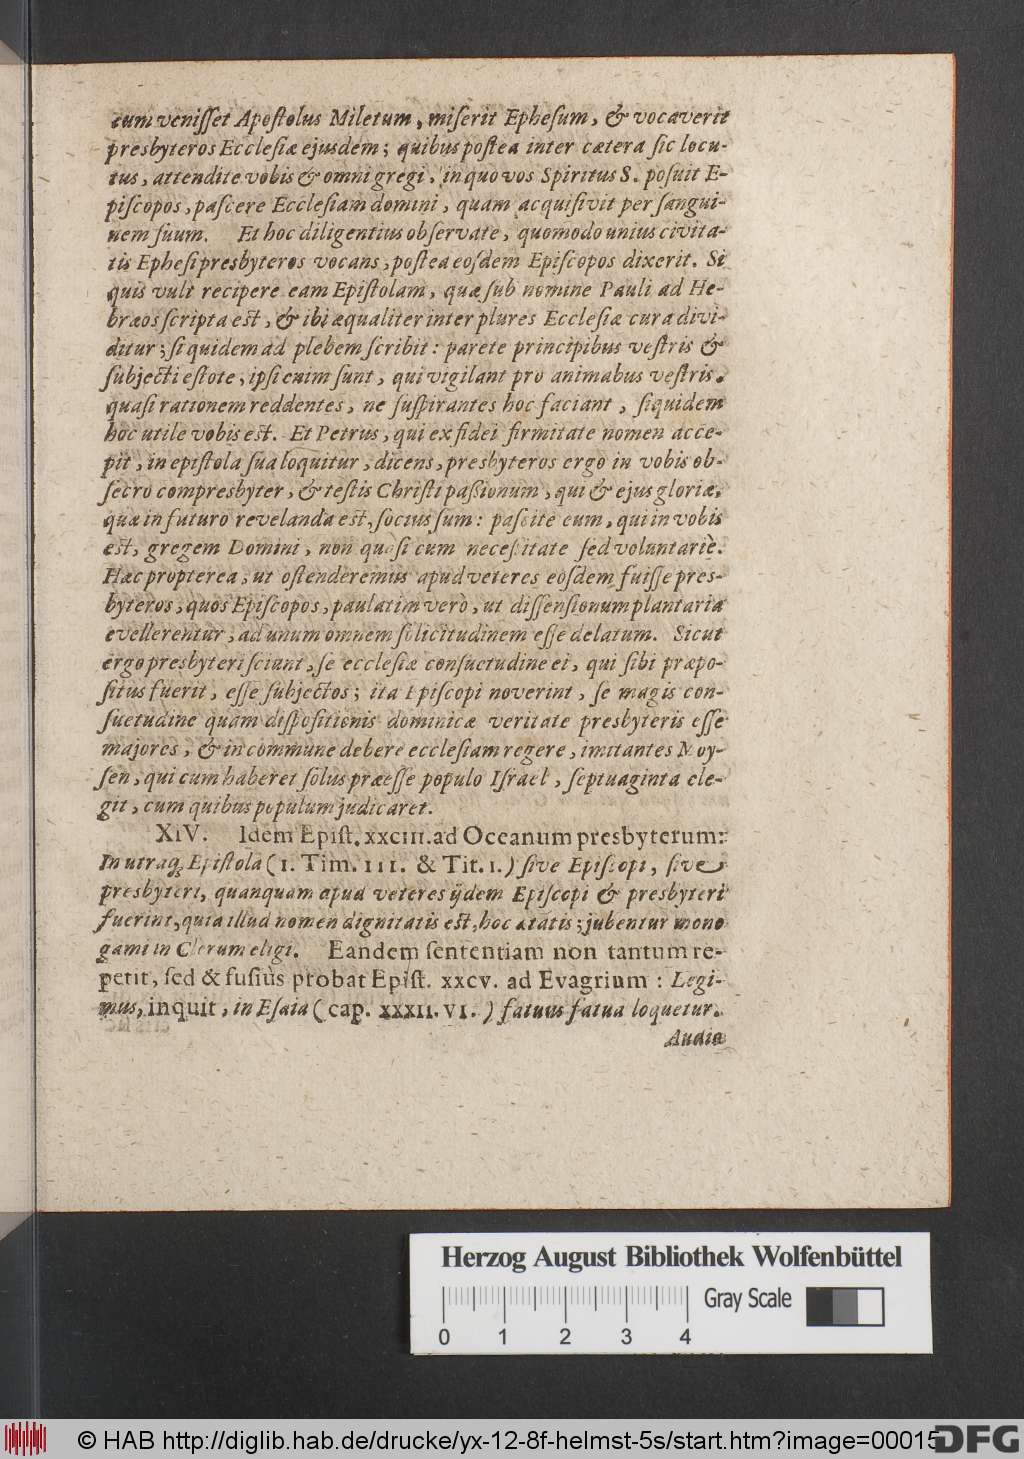 cum veniſſet Apoſtolus Miletum, miſerit Epheſum, & vocaverit
presbyteros Eccleſiæ ejusdem; quibus poſtea inter cætera ſic locu-
tus, attendite vobis & omni gregi, in quo vos Spiritus S. poſuit E-
piſcopos, paſcere Eccleſiam domini, quam acquiſivit per ſangui-
nem ſuum. Et hoc diligentius obſervate, quomodo unius civita-
tis Epheſi presbyteros vocans, poſtea eoſdem Epiſcopos dixerit. Si
quis vult recipere eam Epiſtolam, quæ ſub nomine Pauli ad He-
bræos ſcripta est, & ibi æqualiter inter plures Eccleſiæ cura divi-
ditur; ſiquidem ad plebem ſcribit: parete principibus veſtris &
ſubjecti eſtote, ipſi enim ſunt, qui vigilant pro animabus veſtris.
quaſi rationem reddentes, ne ſuſpirantes hoc faciant, ſiquidem
hoc utile vobis est. Et Petrus, qui ex fidei firmitate nomen acce-
pit, in epiſtola ſua loquitur, dicens, presbyteros ergo in vobis ob-
ſecro compresbyter, & teſtis Chriſti paßionum, qui & ejus gloriæ,
quæ in futuro revelanda est, ſocius ſum: paſcite eum, qui in vobis
est, gregem Domini, non quaſi cum neceſſitate ſed voluntariè.
Hæc propterea, ut oſtenderemus apud veteres eoſdem fuiſſe pres-
byteros, quos Epiſcopos, paulatim verò, ut diſſenſionum plantaria
evellerentur, ad unum omnem ſolicitudinem eſſe delatum. Sicut
ergo presbyteri ſciunt, ſe eccleſiæ conſuetudine ei, qui ſibi præpo-
ſitus fuerit, eſſe ſubjectos; ita Epiſcopi noverint, ſe magis con-
ſuetudine quam diſpoſitionis dominicæ veritate presbyteris eſſe
majores, & in commune debere eccleſiam regere, imitantes Moy-
ſen, qui cum haberet ſolus præeſſe populo Iſrael, ſeptuaginta ele-
git, cum quibus populum judicaret.
XIV. Idem Epiſt. xxciii. ad Oceanum presbyterum:
In utraq; Epiſtola (1. Tim. III. & Tit. 1.) ſive Epiſcopi, ſive
presbyteri, quanquam apud veteres ijdem Epiſcopi & presbyteri
fuerint, quia illud nomen dignitatis est, hoc ætatis; jubentur mono
gami in Clerum eligi. Eandem ſententiam non tantum re-
petit, ſed & fuſiùs probat Epiſt. xxcv. ad Evagrium: Legi-
mus, inquit, in Eſaia (cap. xxxii. vi.) fatuus fatua loquetur.
Audio
Herzog August Bibliothek Wolfenbüttel
Gray Scale
0 1 2 3 4
© HAB http://diglib.hab.de/drucke/yx-12-8f-helmst-5s/start.htm?image=00015
DFG